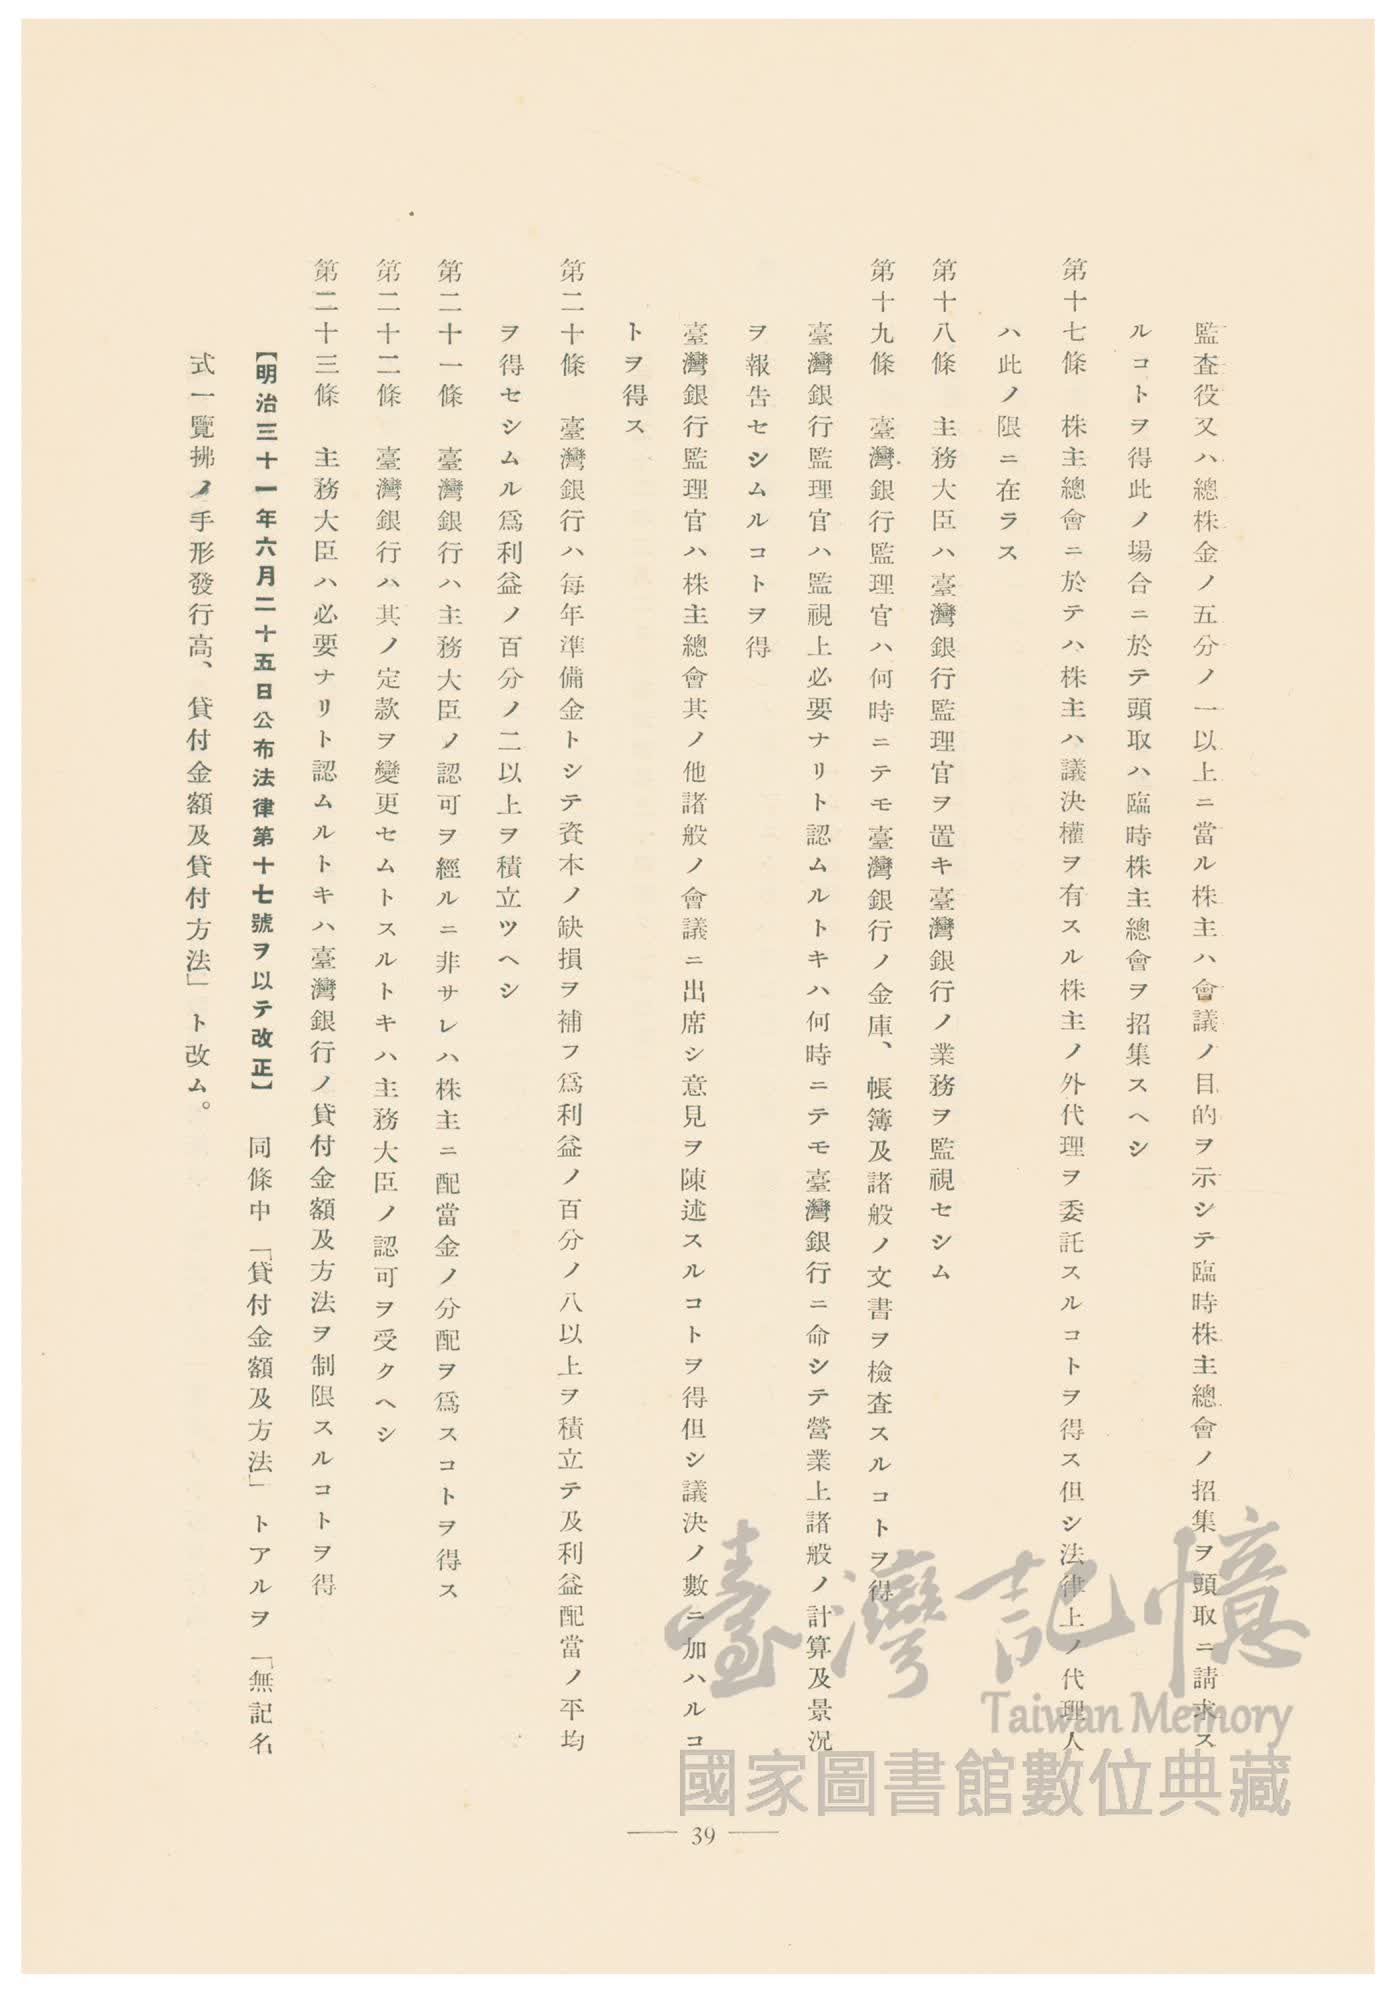 監査役又ハ總株金ノ五分ノ一以上ニ當ル株主ハ會議ノ目的ヲ示シテ臨時株主總會ノ招集ヲ頭取ニ請求ス
ルコトヲ得此ノ場合ニ於テ頭取ハ臨時株主總會ヲ招集スヘシ
第十七條　株主總會ニ於テハ株主ハ議決權ヲ有スル株主ノ外代理ヲ委託スルコトヲ得ス但シ法律上ノ代理人
ハ此ノ限ニ在ラス
第十八條　主務大臣ハ臺灣銀行監理官ヲ置キ臺灣銀行ノ業務ヲ監視セシム
第十九條　臺灣銀行監理官ハ何時ニテモ臺灣銀行ノ金庫、帳簿及諸般ノ文書ヲ檢査スルコトヲ得
臺灣銀行監理官ハ監視上必要ナリト認ムルトキハ何時ニテモ臺灣銀行ニ命シテ營業上諸般ノ計算及景況
ヲ報告セシムルコトヲ得
臺灣銀行監理官ハ株主總會其ノ他諸般ノ會議ニ出席シ意見ヲ陳述スルコトヲ得但シ議決ノ數ニ加ハルコ
トヲ得ス
第二十條　臺灣銀行ハ每年準備金トシテ資本ノ缺損ヲ補フ爲利益ノ百分ノ八以上ヲ積立テ及利益配當ノ平均
ヲ得セシムル爲利益ノ百分ノ二以上ヲ積立ツヘシ
第二十一條　臺灣銀行ハ主務大臣ノ認可ヲ經ルニ非サレハ株主ニ配當金ノ分配ヲ爲スコトヲ得ス
第二十二條　臺灣銀行ハ其ノ定款ヲ變更セムトスルトキハ主務大臣ノ認可ヲ受クヘシ
第二十三條　主務大臣ハ必要ナリト認ムルトキハ臺灣銀行ノ貸付金額及方法ヲ制限スルコトヲ得
【明治三十一年六月二十五日公布法律第十七號ヲ以テ改正】　同條中「貸付金額及方法」トアルヲ「無記名
式一覽拂ノ手形發行高、貸付金額及貸付方法」ト改ム。
臺灣記憶
Taiwan Memory
國家圖書館數位典藏
39